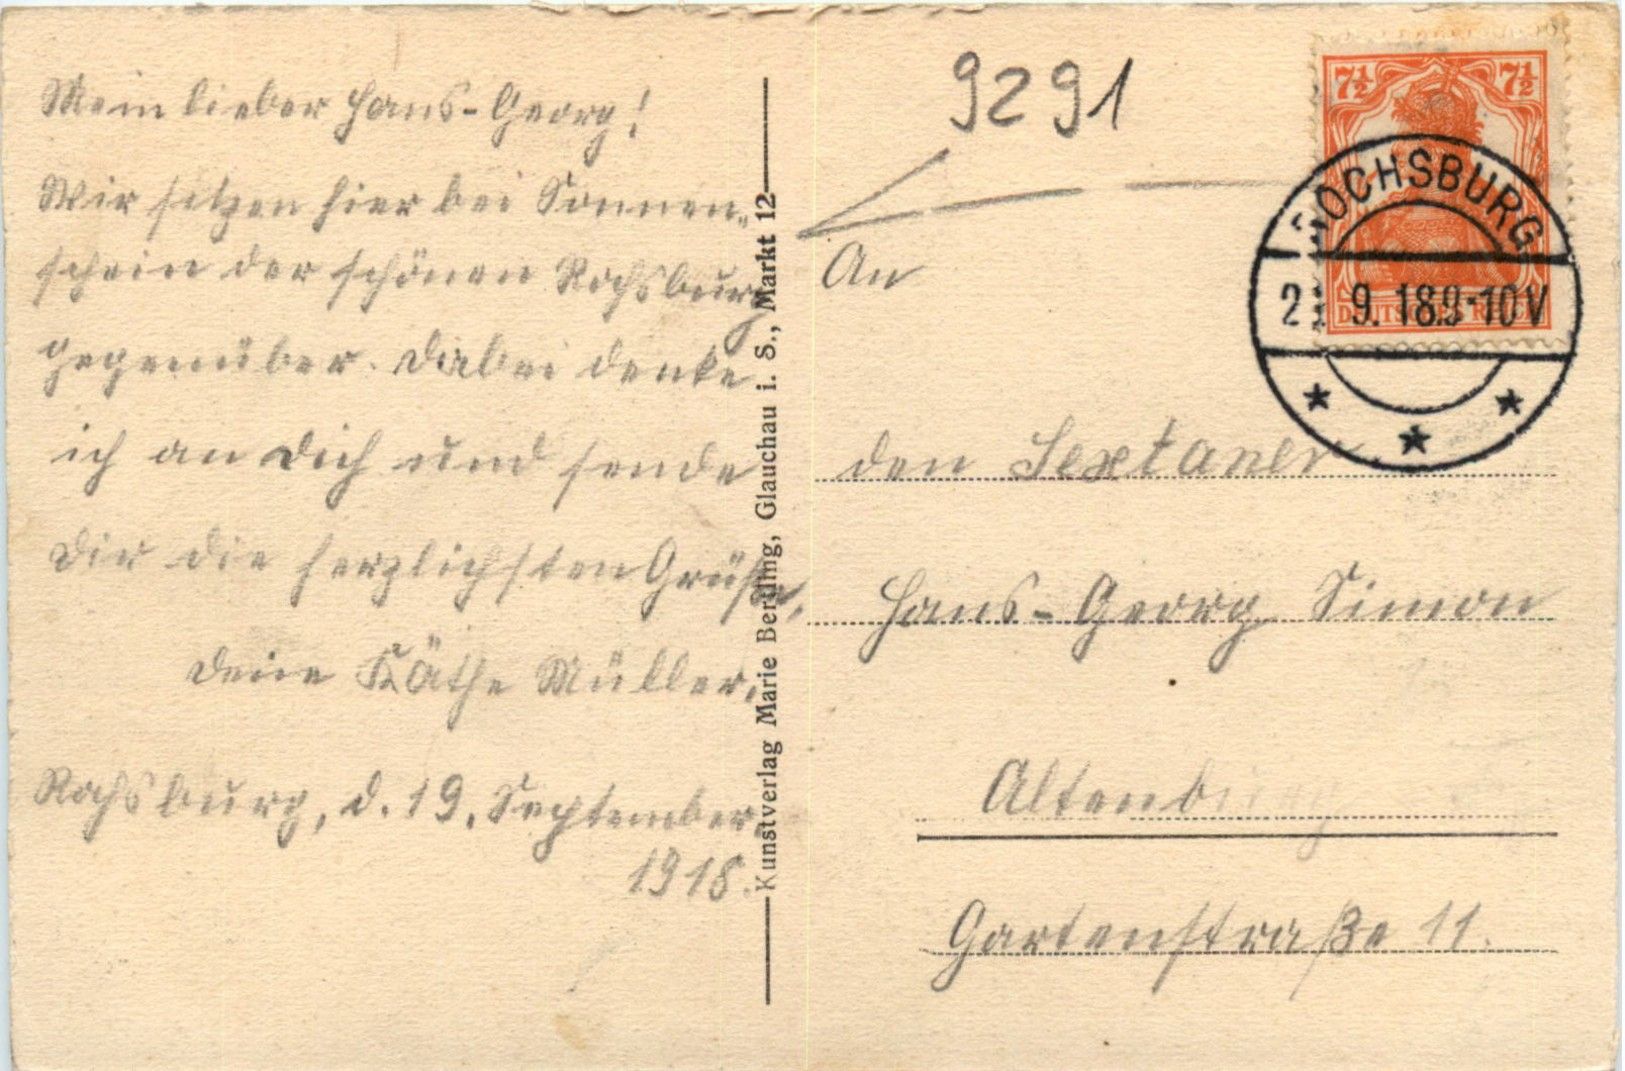 Mein lieber Hans-Georg!
Wir sitzen hier bei Sonnen-
schein der schönen Rochsburg
gegenüber. Dabei denke
ich an Dich und sende
Dir die herzlichsten Grüße,
Deine Käthe Müller.
Rochsburg, d. 19. September
1918.
Kunstverlag Marie Bertling, Glauchau i. S., Markt 12
9291
7½ 7½
DEUTSCHES REICH
ROCHSBURG
9.18.9-10V
An
den Sextaner
Hans-Georg Simon
Altenburg
Gartenstraße 11.